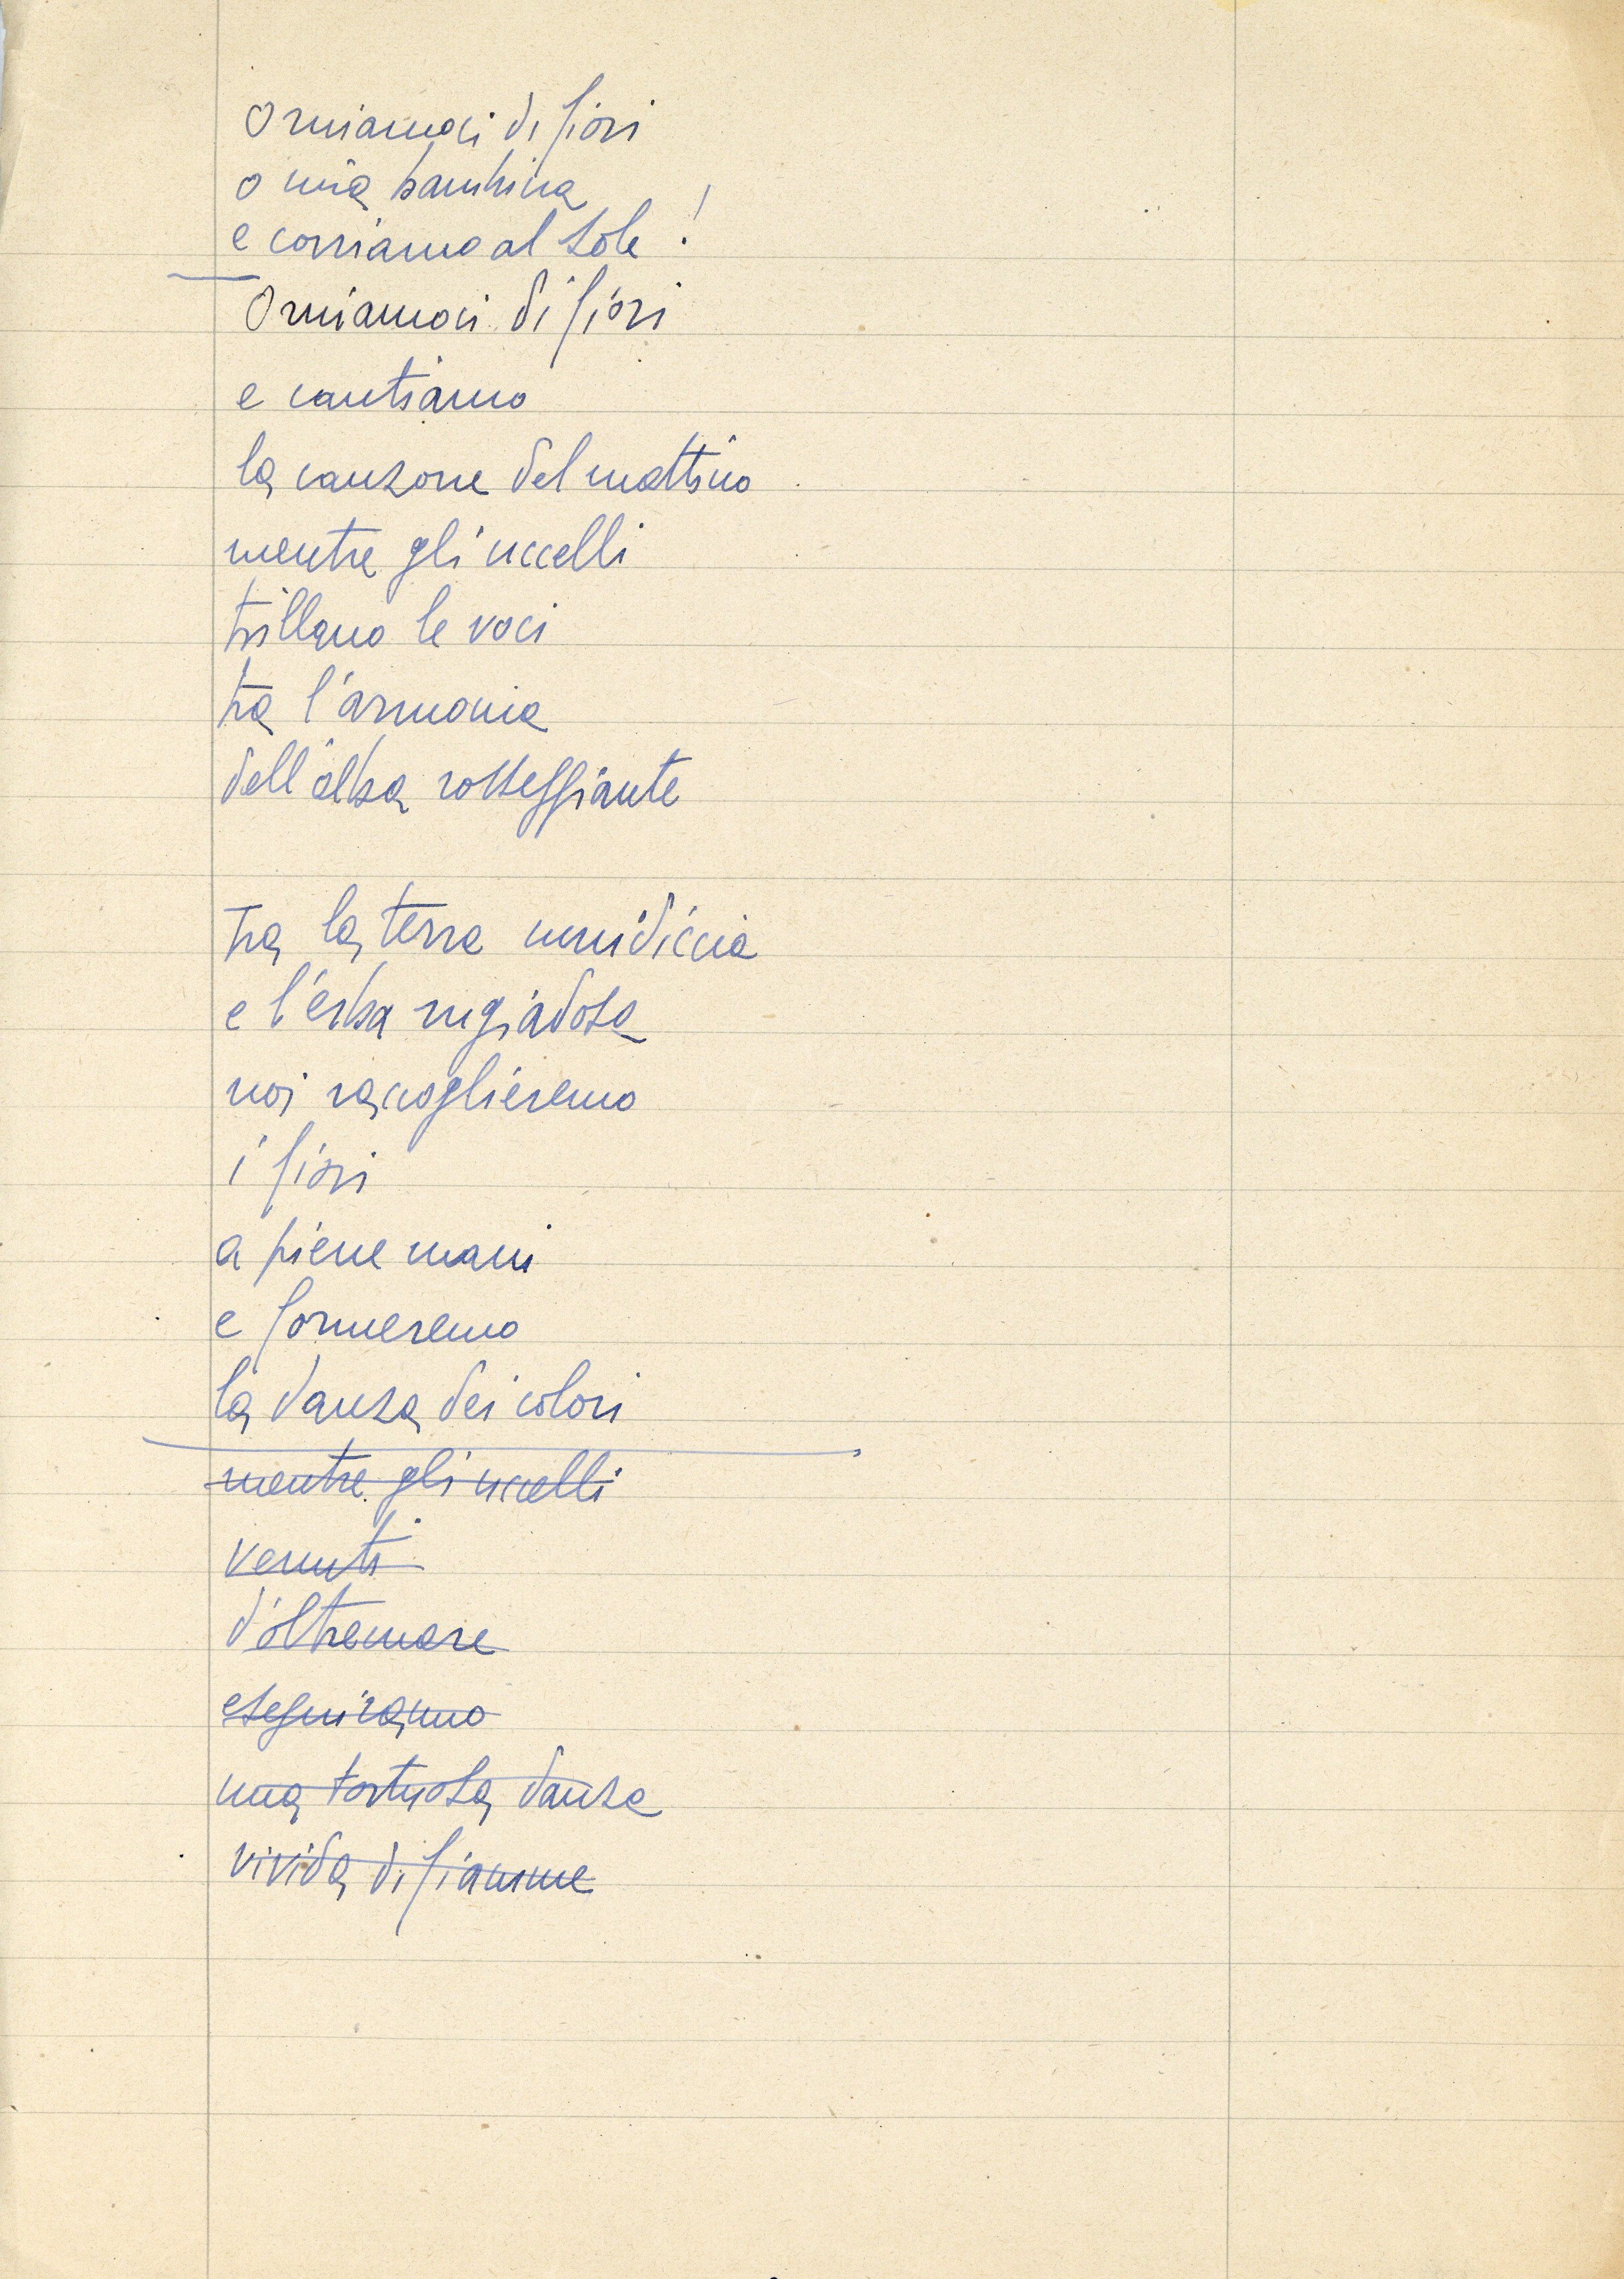 Orniamoci di fiori
o mia bambina
e corriamo al sole !
Orniamoci di fiori
e cantiamo
la canzone del mattino
mentre gli uccelli
trillano le voci
tra l'armonia
dell'alba rosseggiante
Tra la terra umidiccia
e l'erba rugiadosa
noi raccoglieremo
i fiori
a piene mani
e formeremo
la danza dei colori
mentre gli uccelli
venuti
d'oltremare
eseguiranno
una tortuosa danza
vivida di fiamme